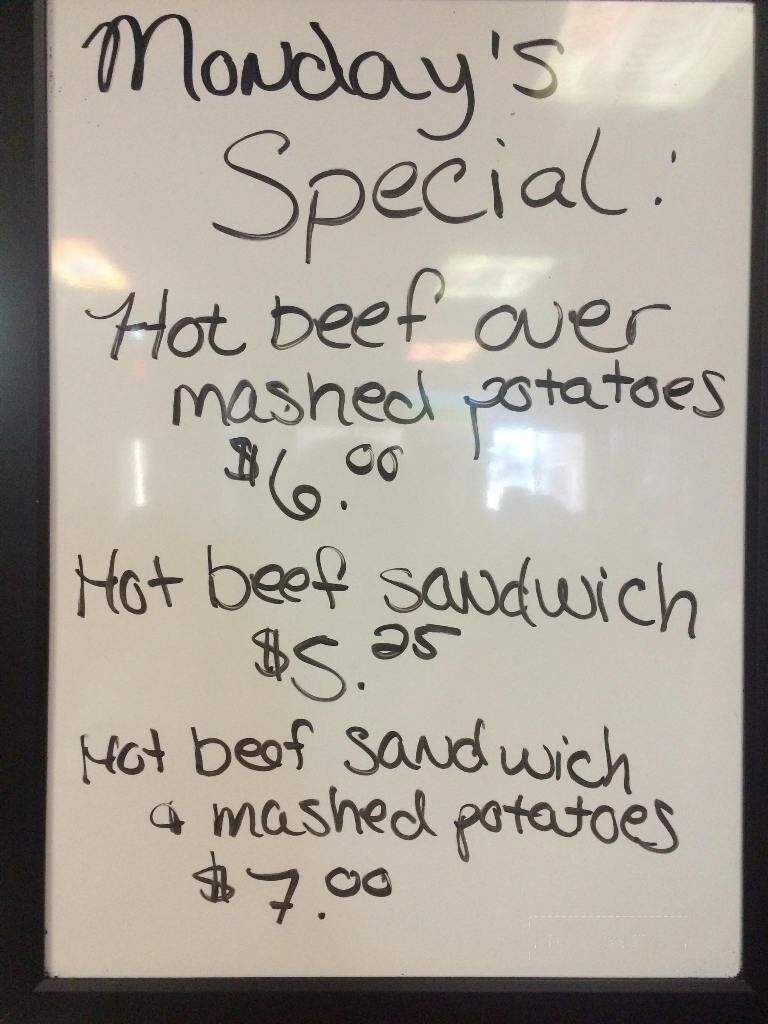 Monday's
Special:
Hot beef over
mashed potatoes
$6.00
Hot beef sandwich
$5.25
Hot beef sandwich
& mashed potatoes
$7.00